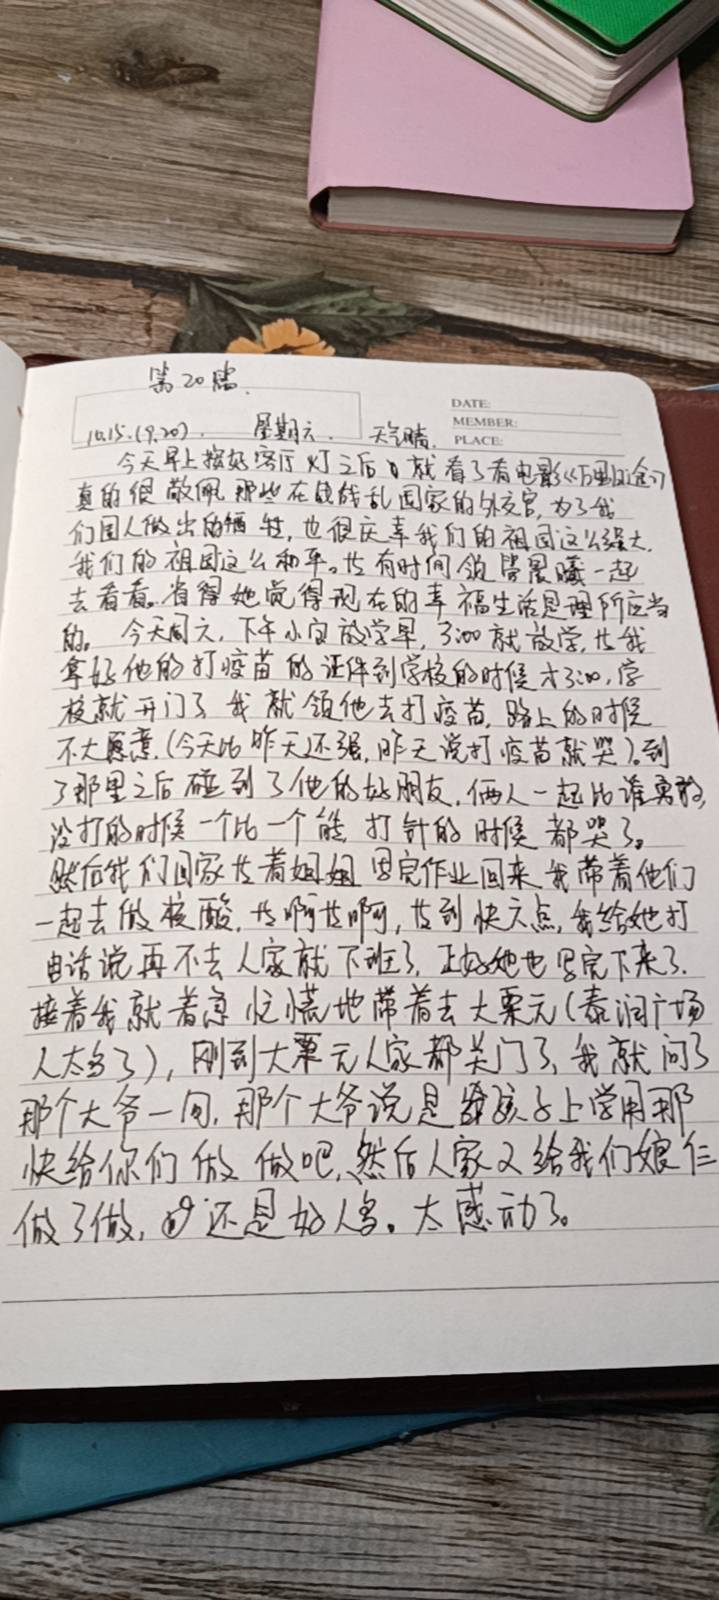 第20篇.
DATE:
MEMBER:
PLACE:
10.15.(9.20). 星期六. 天气晴.
今天早上按好客厅灯之后 就看了看电影《万里归途》
真的很敬佩那些在战乱国家的外交官,为了我
们国人做出的牺牲,也很庆幸我们的祖国这么强大,
我们的祖国这么和平。等有时间领 晨曦一起
去看看。省得她觉得现在的幸福生活是理所应当
的。 今天周六,下午小宝放学早,3:00就放学,等我
拿好他的打疫苗的证件到学校的时候才3:00,学
校就开门了 我就领他去打疫苗,路上的时候
不大愿意,(今天比昨天还强,昨天说打疫苗就哭)。到
了那里之后碰到了他的好朋友,俩人一起比谁勇敢,
没打的时候一个比一个能,打针的时候都哭了。
然后我们回家等着姐姐写完作业回来我带着他们
一起去做核酸,等啊等啊,等到快六点,我给她打
电话说再不去人家就下班了,正好她也写完下来了.
接着我就着急忙慌地带着去大栗元(泰润广场
人太多了),刚到大栗元人家都关门了,我就问了
那个大爷一句,那个大爷说是给孩子上学用那
快给你们做做吧,然后人家又给我们娘仨
做了做, 还是好人多。太感动了。